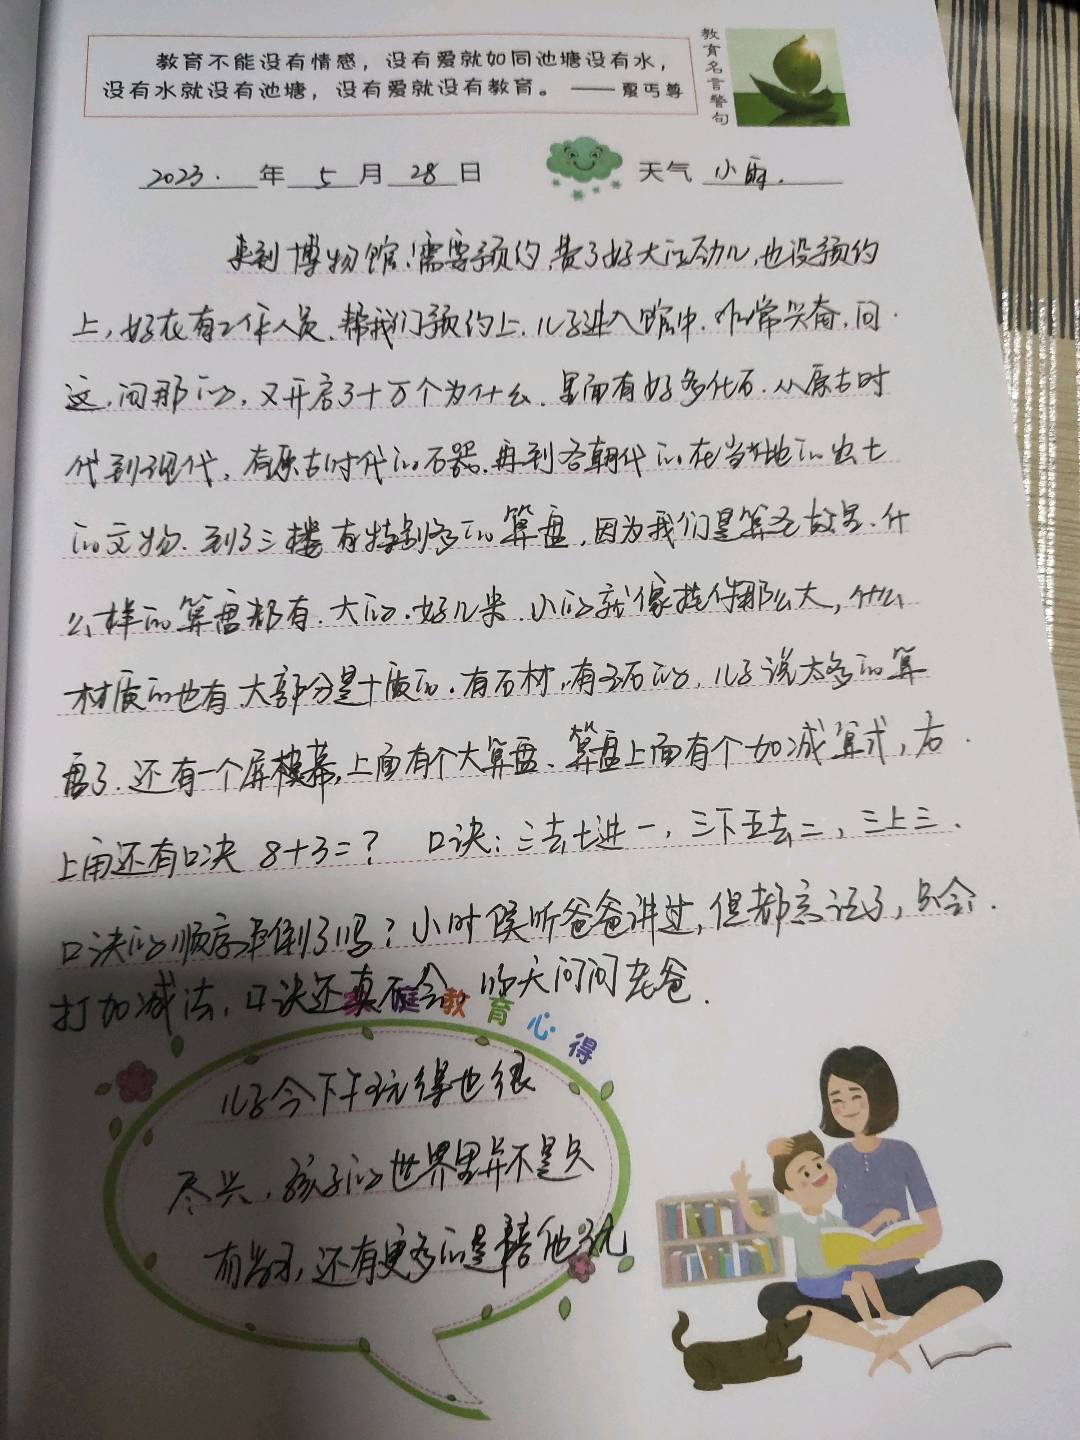 教育不能没有情感，没有爱就如同池塘没有水，
没有水就没有池塘，没有爱就没有教育。——夏丏尊
教育名言警句
2023. 年 5 月 28 日 天气 小雨.
来到博物馆,需要预约,费了好大的劲儿,也没预约
上,好在有工作人员.帮我们预约上.儿子进入馆中.非常兴奋.问
这,问那的,又开启了十万个为什么.里面有好多化石.从原古时
代到现代.有原古时代的石器.再到各朝代的在当地的出土
的文物.到了三楼有特别多的算盘,因为我们是算圣故里.什
么样的算盘都有.大的.好几米.小的就像挂件那么大,什么
材质的也有.大部分是木质的.有石材,有玉石的,儿子说太多的算
盘了.还有一个屏幕,上面有个大算盘、算盘上面有个加减算式,右
上角还有口决 8+3=? 口诀:三去七进一,三下五去二,三上三.
口决的顺序弄倒了吗?小时候听爸爸讲过,但都忘记了,只会.
打加减法,口诀还真不会,明天问问老爸.
家庭教育心得
儿子今下午玩得也很
尽兴.孩子的世界里并不是只
有学习,还有更多的是陪他玩